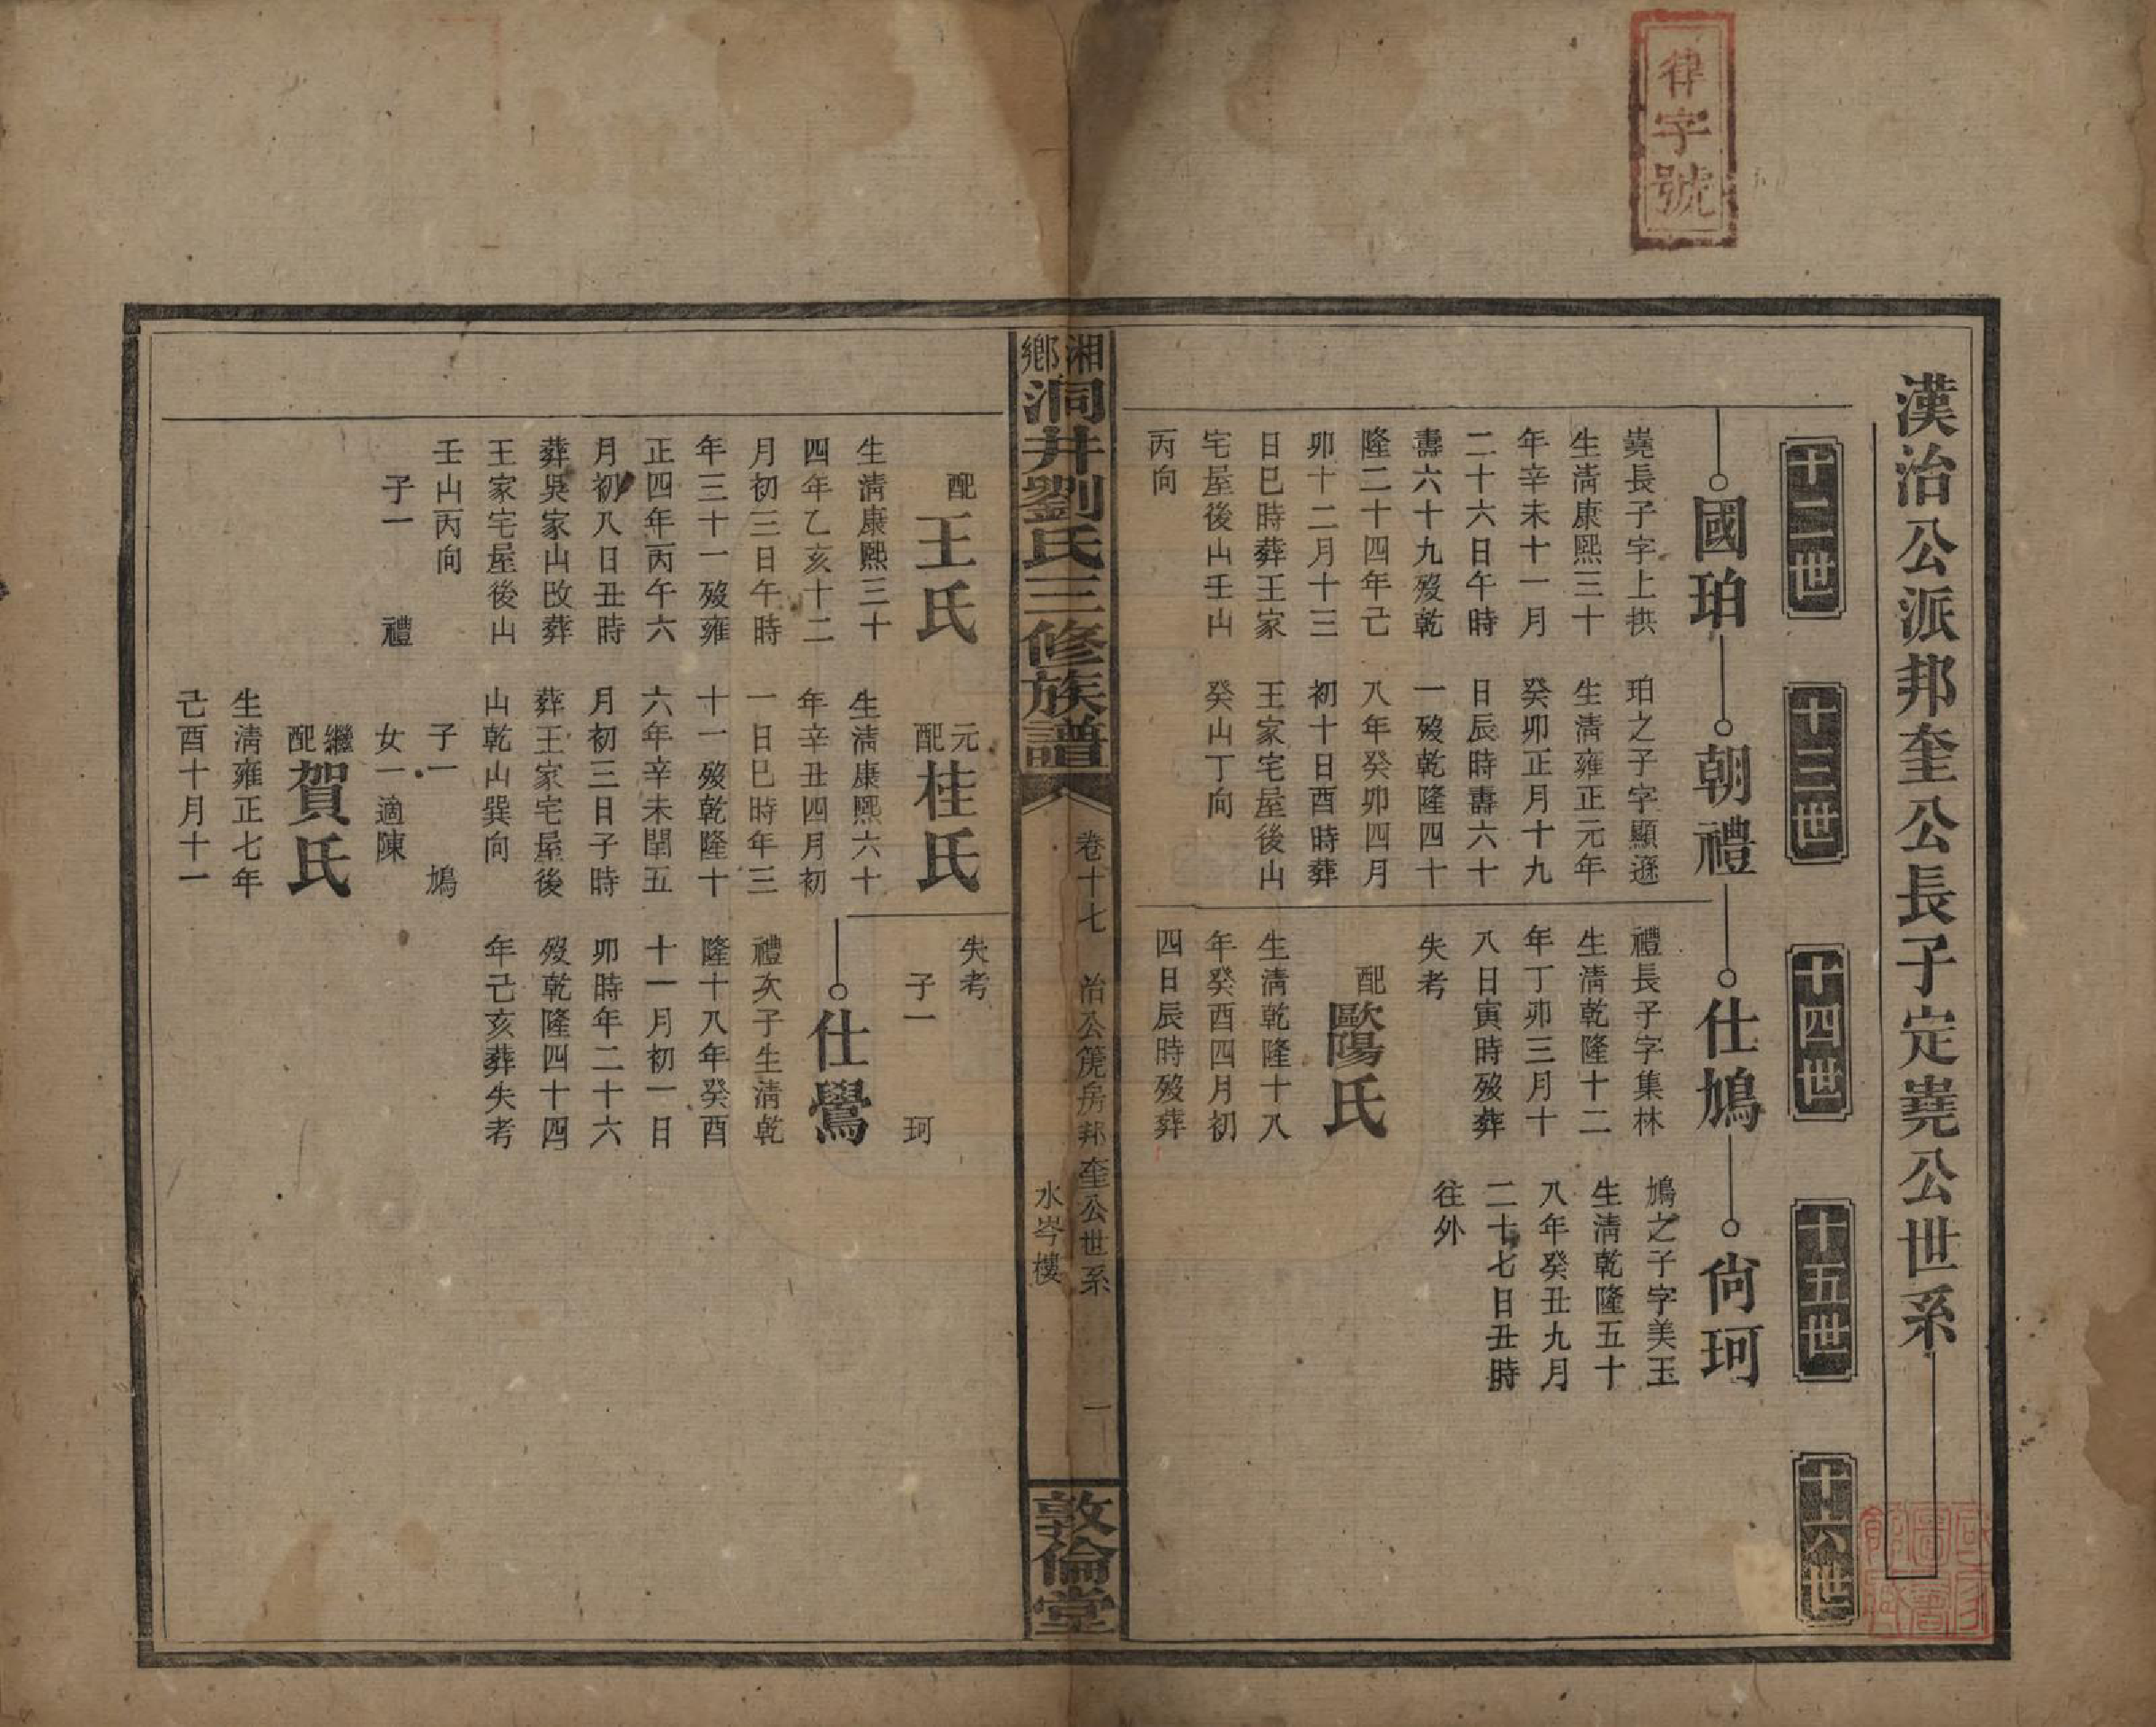 律字號
漢治公派邦奎公長子定堯公世系
十二世
十三世
十四世
十五世
十六世
國珀
堯長子字上拱
生清康熙三十
年辛未十一月
二十六日午時
壽六十九歿乾
隆二十四年己
卯十二月十三
日巳時葬王家
宅屋後山壬山
丙向
朝禮
珀之子字顯遜
生清雍正元年
癸卯正月十九
日辰時壽六十
一歿乾隆四十
八年癸卯四月
初十日酉時葬
王家宅屋後山
癸山丁向
仕鳩
禮長子字集林
生清乾隆十二
年丁卯三月十
八日寅時歿葬
失考
配歐陽氏
生清乾隆十八
年癸酉四月初
四日辰時歿葬
尙珂
鳩之子字美玉
生清乾隆五十
八年癸丑九月
二十七日丑時
往外
湘鄉洞井劉氏三修族譜
卷十七 治公箎房邦奎公世系 一
水岑樓
敦倫堂
配王氏
生清康熙三十
四年乙亥十二
月初三日午時
年三十一歿雍
正四年丙午六
月初八日丑時
葬吳家山改葬
王家宅屋後山
壬山丙向
子一 禮
元配桂氏
生清康熙六十
年辛丑四月初
一日巳時年三
十一歿乾隆十
六年辛未閏五
月初三日子時
葬王家宅屋後
山乾山巽向
子一 鳩
女一適陳
繼配賀氏
生清雍正七年
己酉十月十一
失考
子一 珂
仕鸎
禮次子生清乾
隆十八年癸酉
十一月初一日
卯時年二十六
歿乾隆四十四
年己亥葬失考